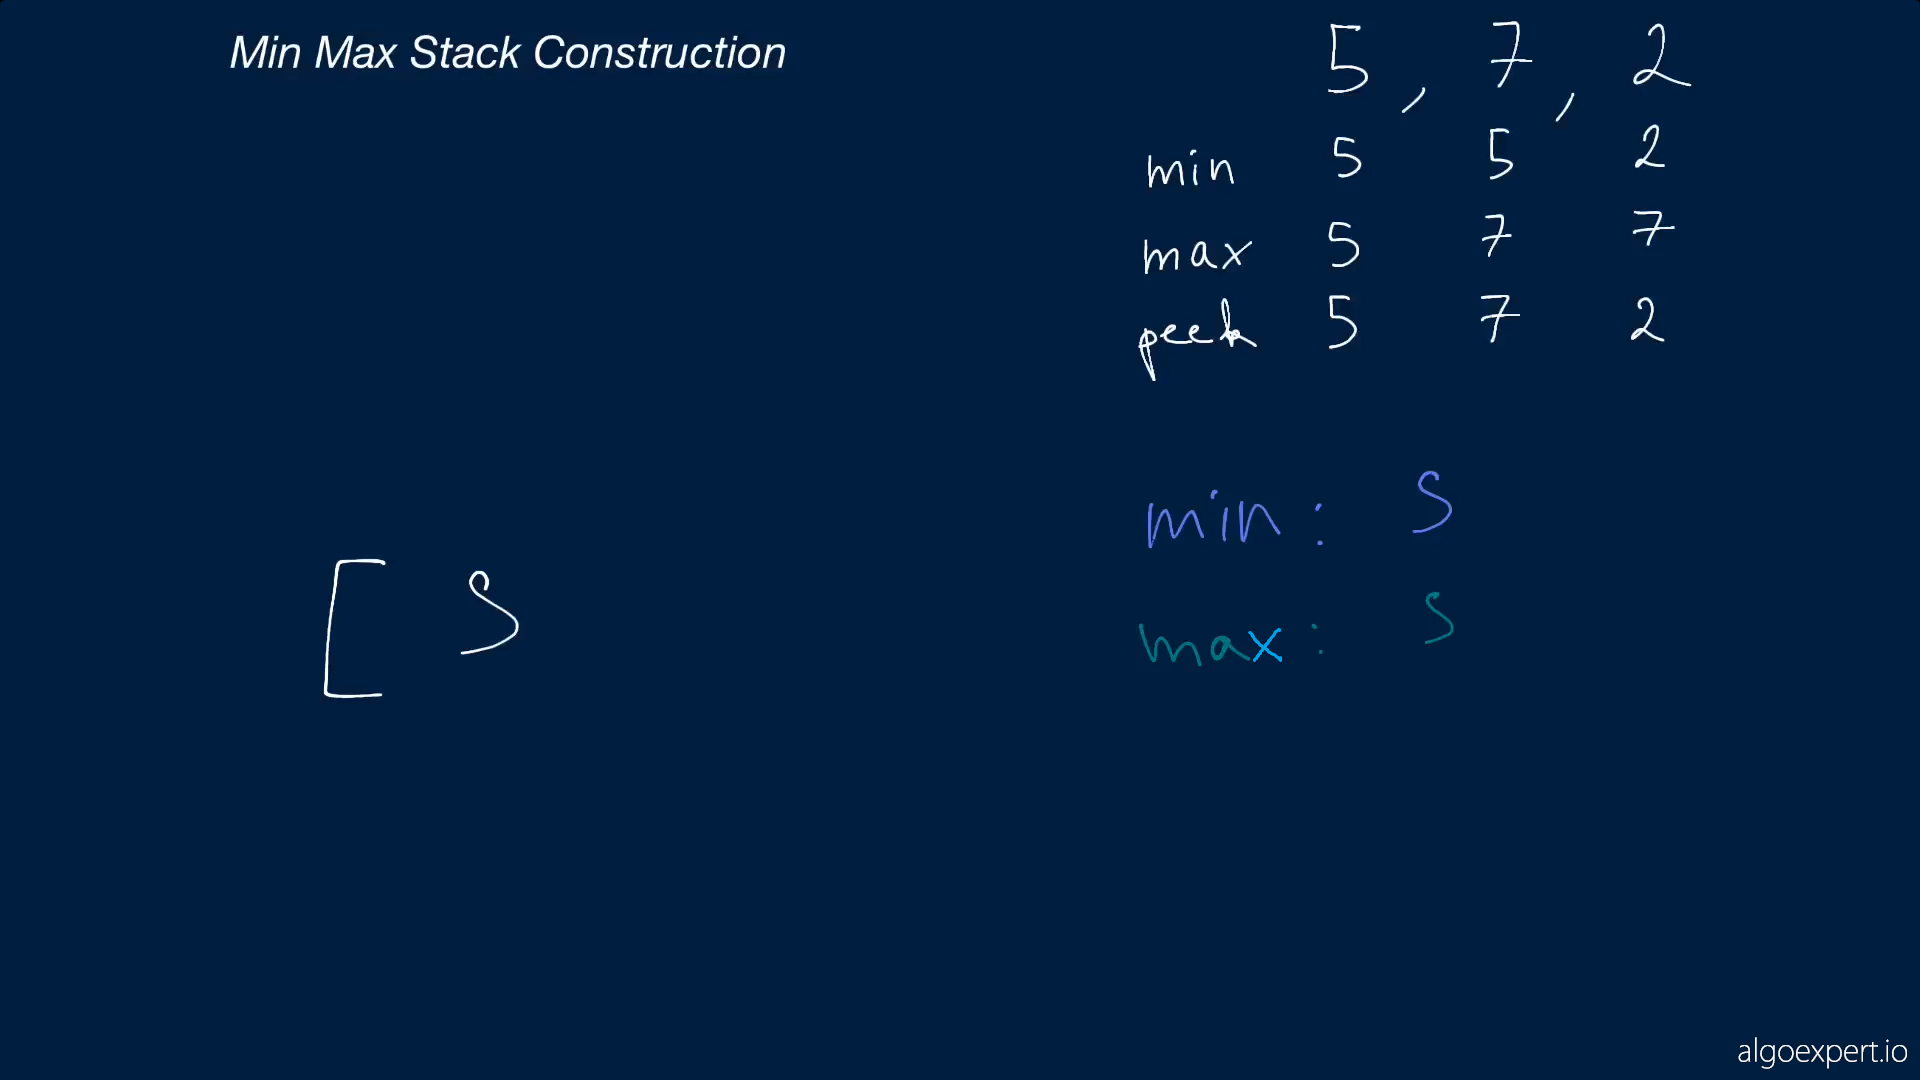 Min Max Stack Construction
5, 7, 2
min 5 5 2
max 5 7 7
peek 5 7 2
min: 5
[ 5
max: 5
algoexpert.io